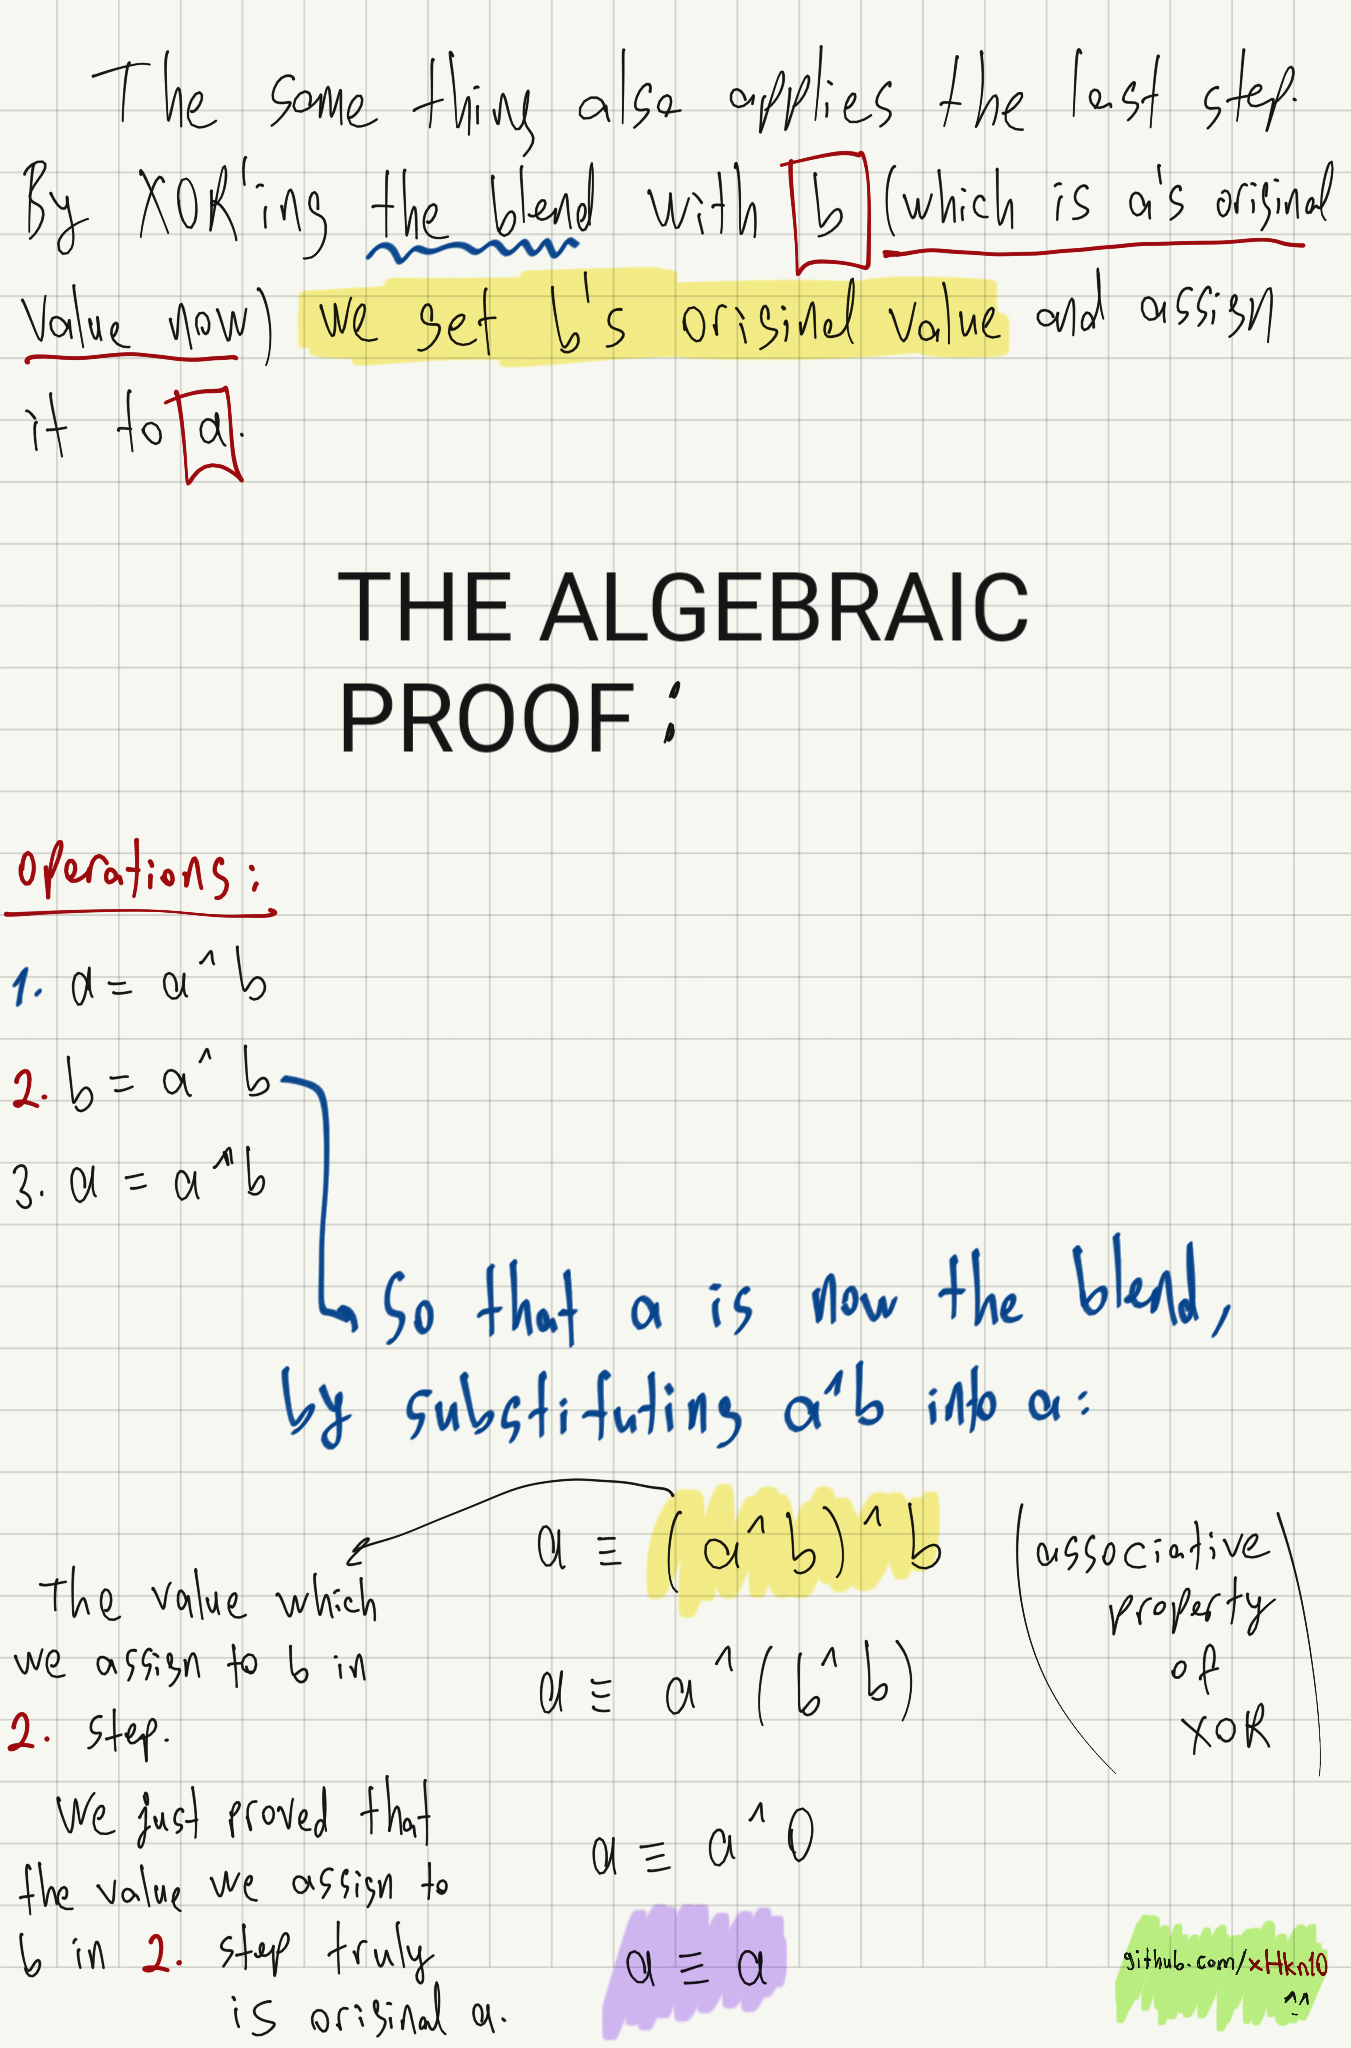 The same thing also applies the last step.
By XOR'ing the blend with b (which is a's original
value now) we get b's original value and assign
it to a.
THE ALGEBRAIC
PROOF:
Operations:
1. a = a ^ b
2. b = a ^ b
3. a = a ^ b
So that a is now the blend,
by substituting a^b into a:
a ≡ (a^b)^b
a ≡ a^(b^b)
a ≡ a^0
a ≡ a
(associative
property
of
XOR)
The value which
we assign to b in
2. step.
We just proved that
the value we assign to
b in 2. step truly
is original a.
github.com/xHkn10
^^